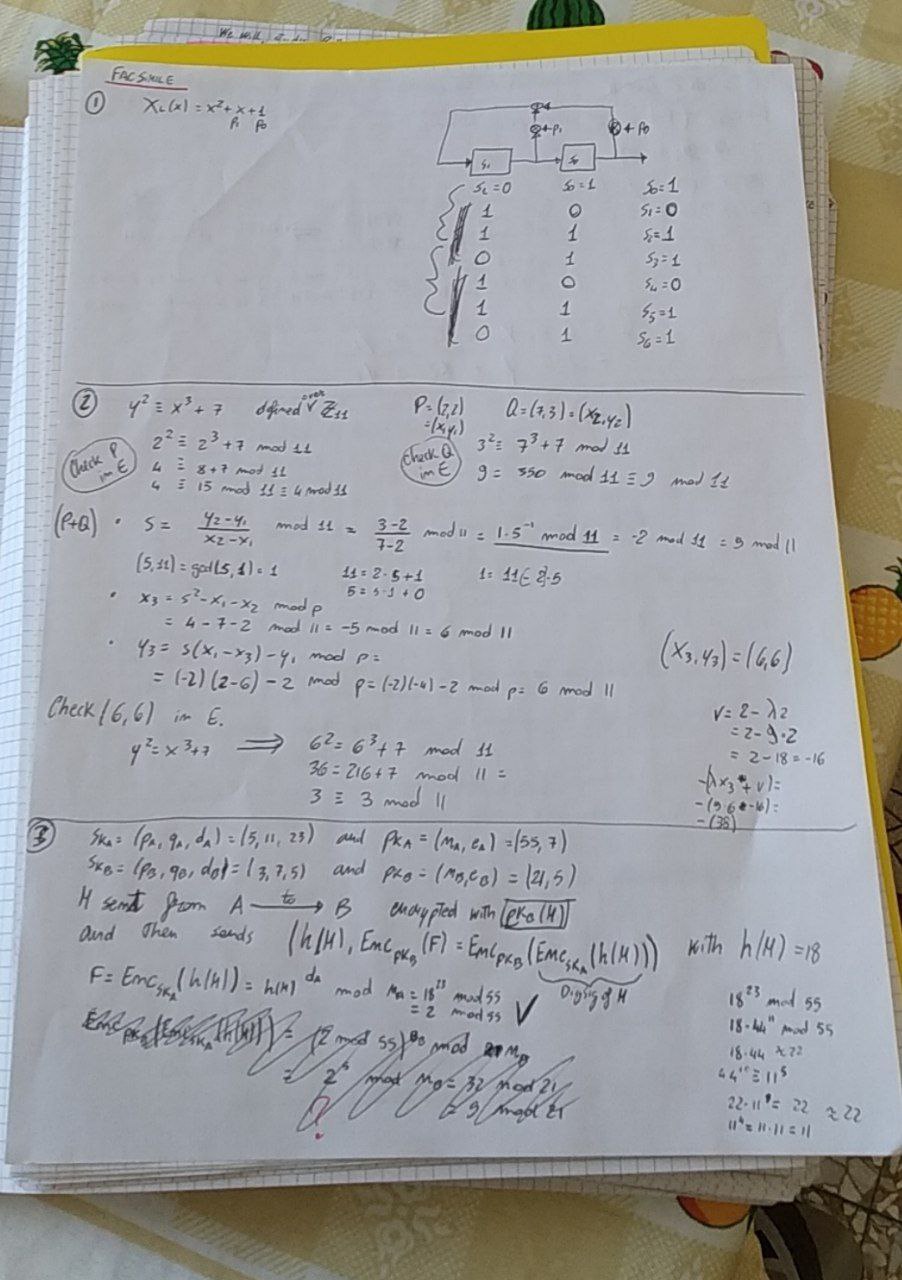 FACSIMILE
① X_L(x) = x² + x + 1
p₁ p₀
p₁
p₀
S₁ S₀
S₁=0 S₀=1 S₀=1
1 0 S₁=0
1 1 S₂=1
0 1 S₃=1
1 0 S₄=0
1 1 S₅=1
0 1 S₆=1
② y² ≡ x³ + 7 defined over Z₁₁ P=(2,2) Q=(7,3)=(x₂,y₂)
=(x₁,y₁)
Check P in E
2² ≡ 2³ + 7 mod 11
4 ≡ 8+7 mod 11
4 ≡ 15 mod 11 ≡ 4 mod 11
Check Q in E
3² ≡ 7³ + 7 mod 11
9 = 350 mod 11 ≡ 9 mod 11
(P+Q) • S = (y₂-y₁)/(x₂-x₁) mod 11 = (3-2)/(7-2) mod 11 = 1·5⁻¹ mod 11 = -2 mod 11 = 9 mod 11
(5,11) = gcd(5,1) = 1 11=2·5+1 1= 11-2·5
5=5·1+0
• x₃ = s²-x₁-x₂ mod p
= 4-7-2 mod 11 = -5 mod 11 = 6 mod 11
• y₃ = s(x₁-x₃)-y₁ mod p =
= (-2)(2-6)-2 mod p = (-2)(-4)-2 mod p = 6 mod 11
(x₃,y₃)=(6,6)
Check (6,6) in E.
y²=x³+7 ⟹ 6² = 6³+7 mod 11
36 = 216+7 mod 11 =
3 ≡ 3 mod 11
v= 2-λ2
= 2-9·2
= 2-18=-16
-(λx₃+v)=
-(9·6-16)=
-(38)
③ SK_A = (p_A, q_A, d_A) = (5,11,23) and PK_A = (m_A, e_A) = (55,7)
SK_B = (p_B, q_B, d_B) = (3,7,5) and PK_B = (m_B, e_B) = (21,5)
M sent from A to → B encrypted with PK_B(M)
and then sends (h(M), Enc_PK_B(F) = Enc_PK_B(Enc_SK_A(h(M)))) with h(M)=18
Digsig of M
F = Enc_SK_A(h(M)) = h(M)^d_A mod m_A = 18²³ mod 55
= 2 mod 55 ✓
Enc_PK_B(Enc_SK_A(h(M))) = (2 mod 55)^e_B mod m_B
= 2⁵ mod m_B = 32 mod 21
= 9 mod 21
?
18²³ mod 55
18·44¹¹ mod 55
18·44 ≈ 22
44¹⁰ ≡ 11⁵
≈ 22
11⁴ = 11·11 = 11